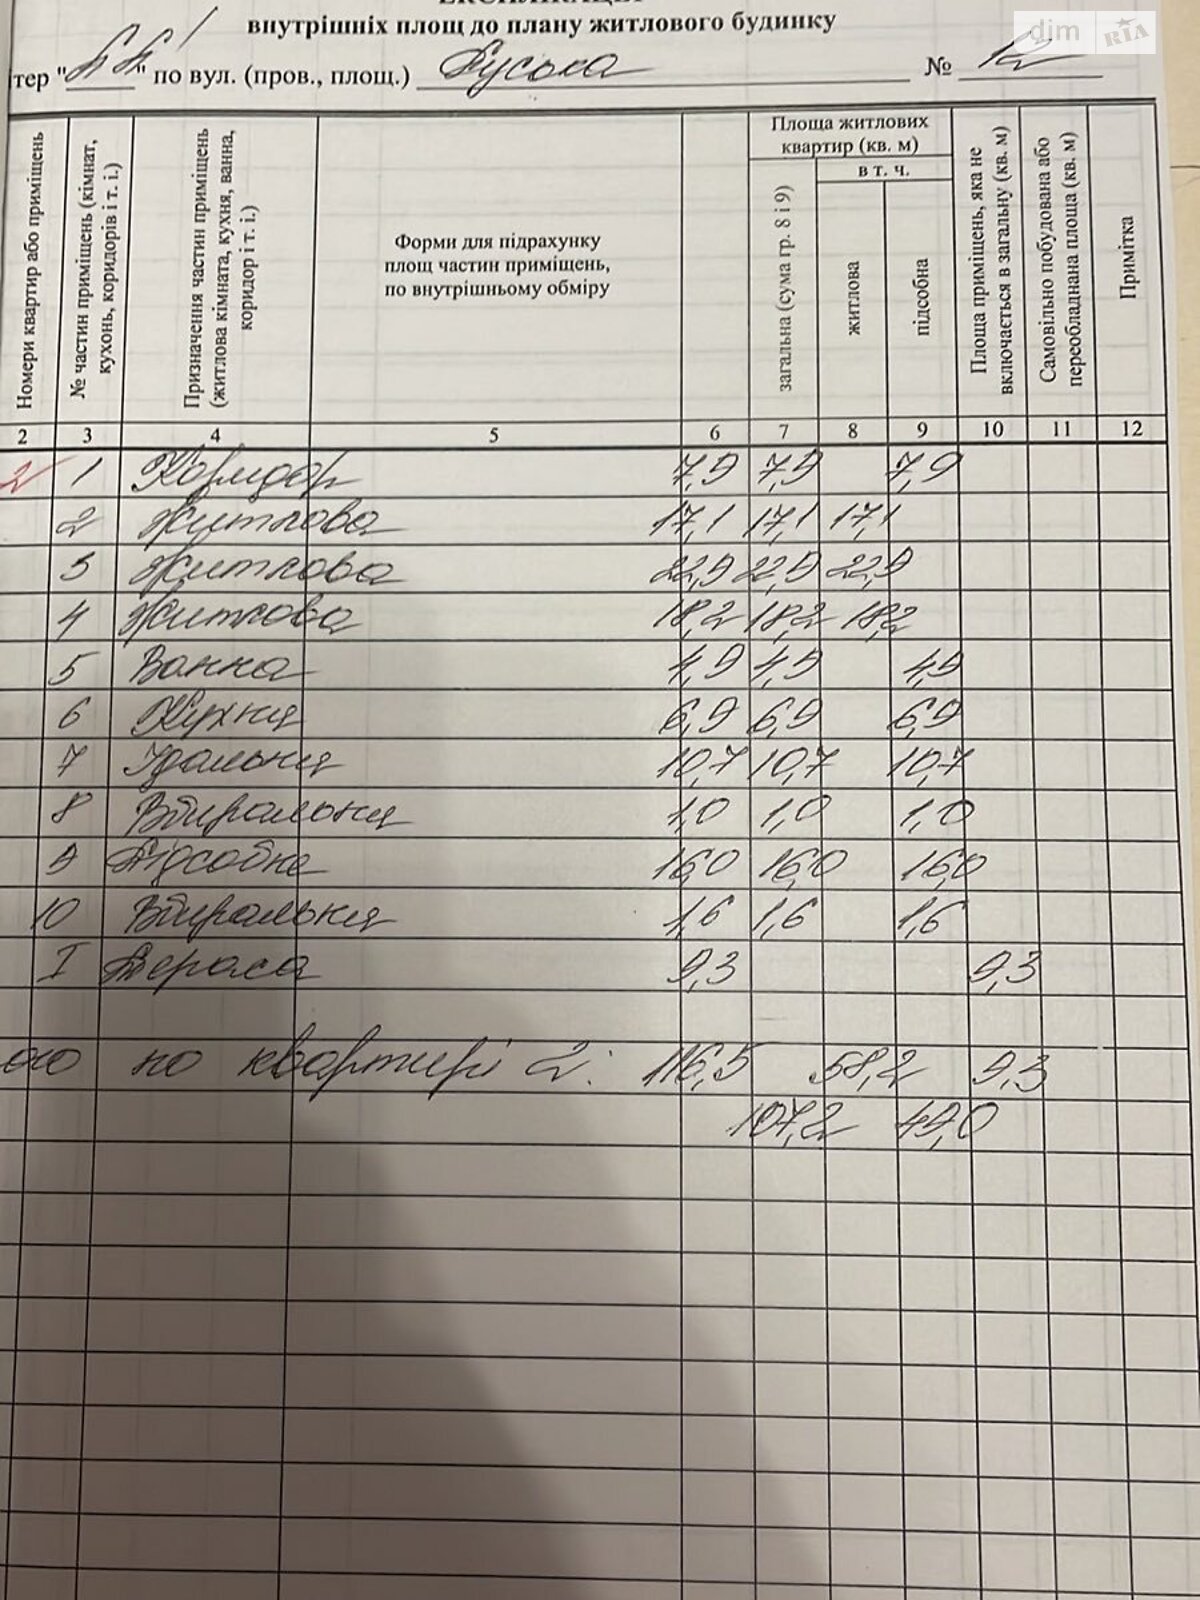 внутрішніх площ до плану житлового будинку
dim RIA
тер " " по вул. (пров., площ.) Руська № 12
Номери квартир або приміщень
№ частин приміщень (кімнат, кухонь, коридорів і т. і.)
Призначення частин приміщень (житлова кімната, кухня, ванна, коридор і т. і.)
Форми для підрахунку
площ частин приміщень,
по внутрішньому обміру
Площа житлових
квартир (кв. м)
в т. ч.
загальна (сума гр. 8 і 9)
житлова
підсобна
Площа приміщень, яка не включається в загальну (кв. м)
Самовільно побудована або переобладнана площа (кв. м)
Примітка
2 3 4 5 6 7 8 9 10 11 12
2 1 Коридор 7,9 7,9 7,9
2 Житлова 17,1 17,1 17,1
3 Житлова 22,9 22,9 22,9
4 Житлова 18,2 18,2 18,2
5 Ванна 4,9 4,9 4,9
6 Кухня 6,9 6,9 6,9
7 Їдальня 10,7 10,7 10,7
8 Вбиральня 1,0 1,0 1,0
9 Підсобне 16,0 16,0 16,0
10 Вбиральня 1,6 1,6 1,6
I Тераса 9,3 9,3
ого по квартирі 2: 116,5 58,2 9,3
107,2 49,0